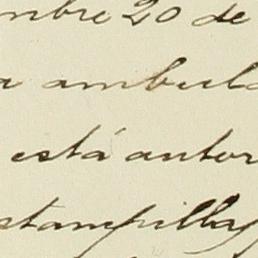 mbre 20 de
a ambula
está autor
stampillas